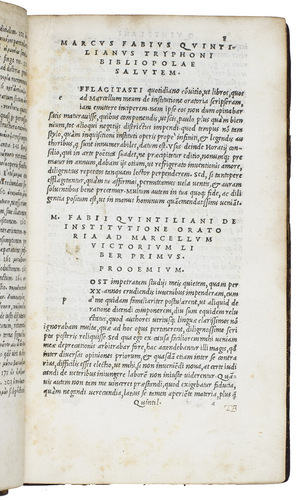 MARCVS FABIVS QVINTI-
LIANVS TRYPHONI
BIBLIOPOLAE
SALVTEM.
EFFLAGITASTI quotidiano cõuitio, ut libros, quos
ad Marcellum meum de institutione oratoria scripseram,
iam emittere inciperem. nam ipse eos non dum opinabar
satis maturuisse, quibus componendis, ut scis, paulo plus quàm bien
nium, tot alioqui negotijs districtus impendi: quod tempus nõ tam
stylo, quàm inquisitioni instituti operis prope infiniti, & legendis au
thoribus, qui sunt innumerabiles, datum est. Vsus deinde Horatij con
silio, qui in arte poetica suadet, ne præcipitetur editio, nonumq; pre
matur in annum, dabam ijs otium, ut refrigerato inventionis amore,
diligentius repetitos tanquam lector perpenderem. Sed, si tantopere
efflagitantur, quàm tu affirmas, permittamus uela uentis, & oram
soluentibus bene precemur. Multum autem in tua quoq; fide, ac dili
gentia positum est, ut in manus hominum quàm emendatissimi ueniãt.
M. FABII QVINTILIANI DE
INSTITVTIONE ORATO
RIA AD MARCELLVM
VICTORIVM LI
BER PRIMVS.
PROOEMIVM.
POST impetratam studijs meis quietem, quam per
XX. annos erudiendis iuuenibus impenderam, cum
a me quidam familiariter postularent, ut aliquid de
ratione dicendi componerem, diu sum equidem reluc
tatus, quod authores utriusq; linguæ clarissimos nõ
ignorabam multa, quæ ad hoc opus pertinerent, diligentissime scri
pta posteris reliquisse. Sed qua ego ex causa faciliorem mihi ueniam
meæ deprecationis arbitrabar fore, hac accendebantur illi magis, quod
inter diuersas opiniones priorum, & quasdã etiam inter se contra
rias, difficilis esset electio, ut mihi, si non inueniẽdi noua, at certe iudi
candi de ueteribus iniungere laborẽ non iniuste uiderentur. Quã-
uis autem non tam me uinceret præstandi, quod exigebatur fiducia,
quàm negandi uerecundia, latius se tamen aperiẽte materia, plus q̃
Quintil.